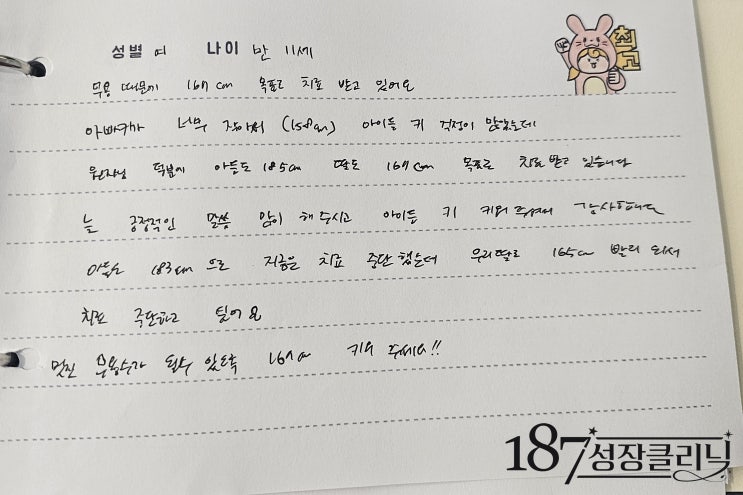 성별 여 나이 만 11세
최고
무용 때문에 167cm 목표로 치료 받고 있어요
아빠키가 너무 작아서 (158cm) 아이들 키 걱정이 많았는데
원장님 덕분에 아들도 185cm 딸도 167cm 목표로 치료 받고 있습니다
늘 긍정적인 말씀 많이 해 주시고 아이들 키 키워 주셔서 감사합니다
아들은 183cm 으로 지금은 치료 중단 했는데 우리딸도 165cm 빨리 되서
치료 중단하고 싶어요
멋진 무용수가 될수 있도록 167cm 키워 주세요!!
187 성장클리닉